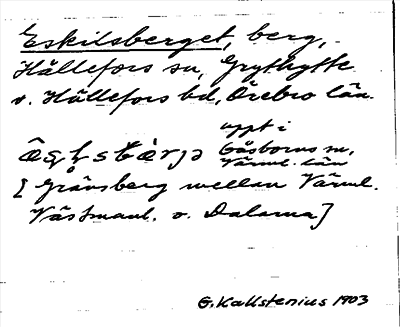 Eskilsberget, berg,
Hällefors sn, Grythytte
o. Hällefors bd, Örebro län.
uppt i
Gåsborns sn,
Värml. län
[Gränsberg mellan Värml.
Västmanl. o. Dalarna]
G. Kallstenius 1903